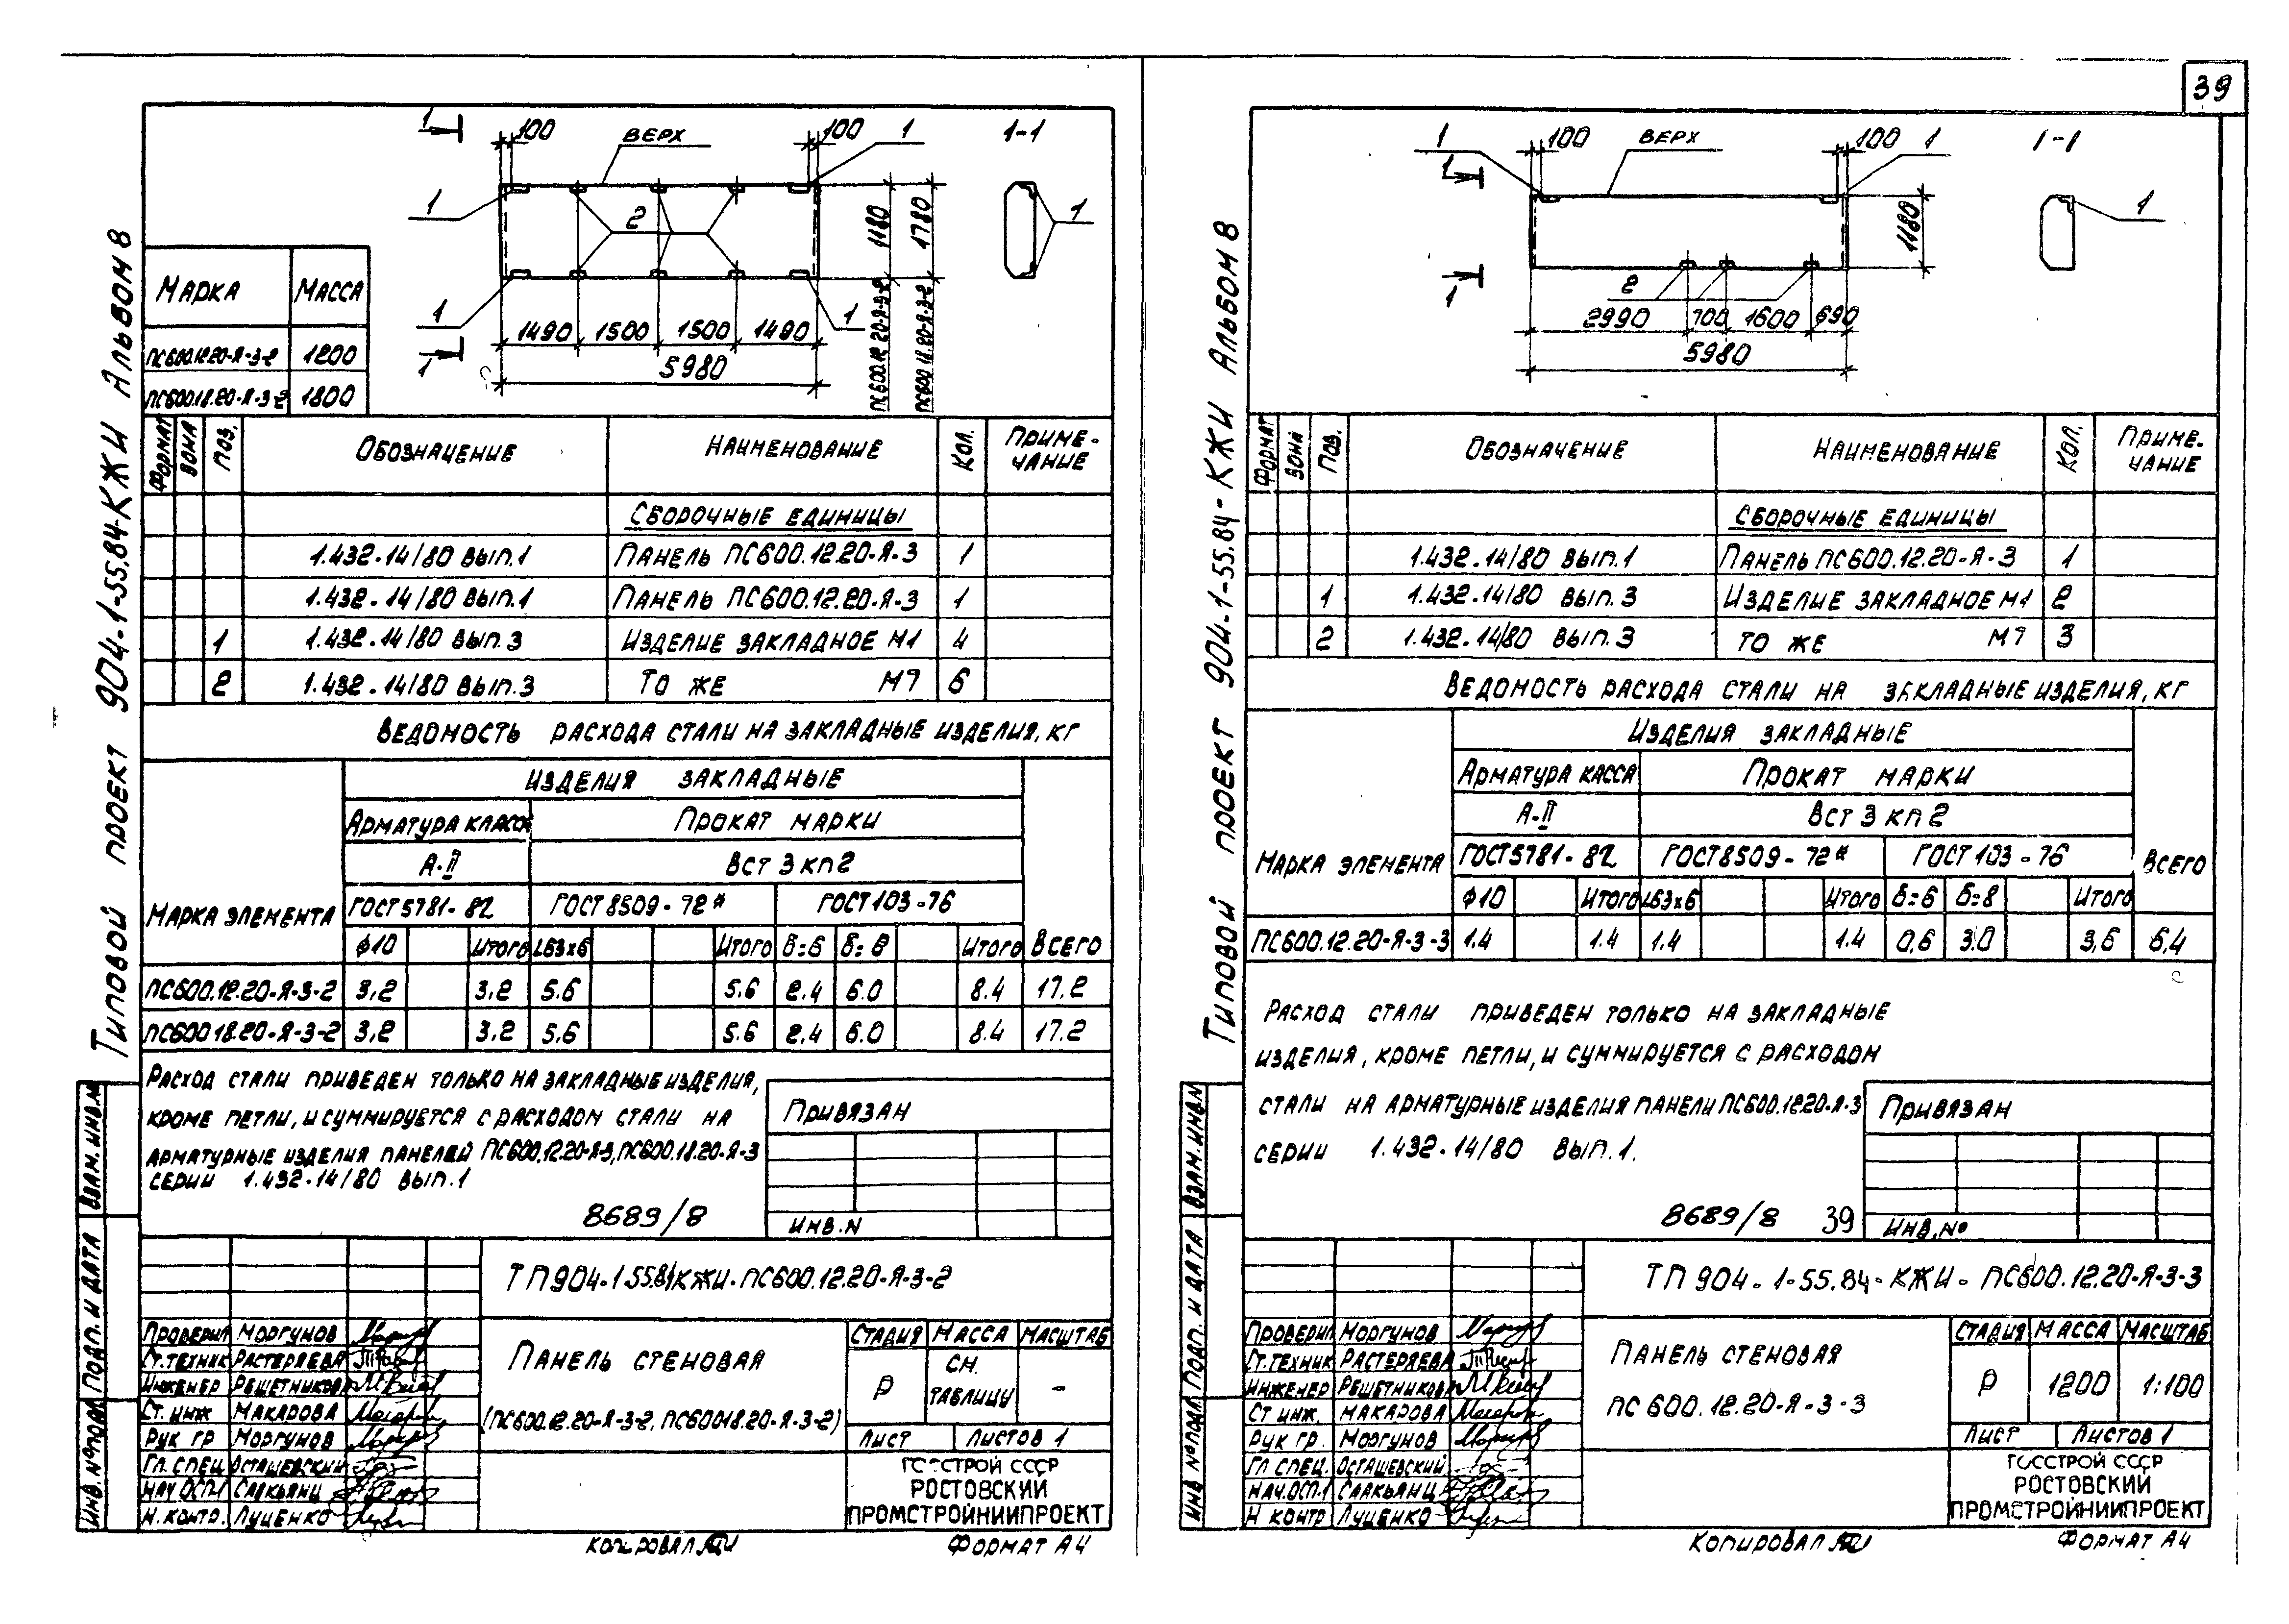 39
Типовой проект 904-1-55.84-КЖИ Альбом 8
1
100
ВЕРХ
100
1
1-1
1
2
1180
1780
1
1
1
1490 1500 1500 1490
5980
1
ПС600.12.20-Я-3-2
ПС600.18.20-Я-3-2
Марка Масса
ПС600.12.20-Я-3-2 1200
ПС600.18.20-Я-3-2 1800
Формат Зона Поз. Обозначение Наименование Кол. Приме-
чание
Сборочные единицы
1.432-14/80 вып.1 Панель ПС600.12.20-Я-3 1
1.432-14/80 вып.1 Панель ПС600.12.20-Я-3 1
1 1.432-14/80 вып.3 Изделие закладное М1 4
2 1.432-14/80 вып.3 То же М7 6
Ведомость расхода стали на закладные изделия, кг
Марка элемента
Изделия закладные
Всего
Арматура класса Прокат марки
А-II ВСт 3 кп 2
ГОСТ 5781-82 ГОСТ 8509-72* ГОСТ 103-76
ф10 Итого L63х6 Итого δ=6 δ=8 Итого
ПС600.12.20-Я-3-2 3,2 3,2 5.6 5.6 2.4 6.0 8.4 17.2
ПС600 18.20-Я-3-2 3,2 3,2 5.6 5.6 2.4 6.0 8.4 17.2
Расход стали приведен только на закладные изделия,
кроме петли, и суммируется с расходом стали на
арматурные изделия панелей ПС600.12.20-Я-3, ПС600.18.20-Я-3
серии 1.432-14/80 вып.1
8689/8
Привязан
Инв.N
ТП 904-1.55.84 КЖИ-ПС600.12.20-Я-3-2
Проверил Моргунов
Ст.техник Растеряева
Инженер Решетникова
Ст. инж Макарова
Рук гр Моргунов
Гл. спец Осташевский
Нач ОСП-1 Саакьянц
Н. контр. Луценко
Панель стеновая
(ПС600.12.20-Я-3-2, ПС60018.20-Я-3-2)
Стадия Масса Масштаб
Р См. таблицу -
Лист Листов 1
ГОССТРОЙ СССР
РОСТОВСКИЙ
ПРОМСТРОЙНИИПРОЕКТ
Копировал
Формат А4
Инв. № подл. Подп. и дата Взам. инв. N
Типовой проект 904-1-55.84-КЖИ Альбом 8
1
100
ВЕРХ
100
1
1-1
1
1180
1
1
2
2990 700 1600 690
5980
Формат Зона Поз. Обозначение Наименование Кол. Приме-
чание
Сборочные единицы
1.432-14/80 вып.1 Панель ПС600.12.20-Я-3 1
1 1.432-14/80 вып.3 Изделие закладное М1 2
2 1.432-14/80 вып.3 То же М7 3
Ведомость расхода стали на закладные изделия, кг
Марка элемента
Изделия закладные
Всего
Арматура касса Прокат марки
А-II ВСт 3 кп 2
ГОСТ 5781-82 ГОСТ 8509-72* ГОСТ 103-76
ф10 Итого L63х6 Итого δ=6 δ=8 Итого
ПС600.12.20-Я-3-3 1.4 1.4 1.4 1.4 0,6 3.0 3,6 6,4
Расход стали приведен только на закладные
изделия, кроме петли, и суммируется с расходом
стали на арматурные изделия панели ПС600.12.20-Я-3
серии 1.432-14/80 вып.1.
8689/8 39
Привязан
Инв. №
ТП 904-1-55.84-КЖИ-ПС600.12.20-Я-3-3
Проверил Моргунов
Ст.техник Растеряева
Инженер Решетникова
Ст инж. Макарова
Рук гр. Моргунов
Гл спец. Осташевский
Нач. ОСП.1 Саакьянц
Н контр Луценко
Панель стеновая
ПС 600.12.20-Я-3-3
Стадия Масса Масштаб
Р 1200 1:100
Лист Листов 1
ГОССТРОЙ СССР
РОСТОВСКИЙ
ПРОМСТРОЙНИИПРОЕКТ
Копировал
Формат А4
Инв № подл. Подп. и дата Взам. инв. N